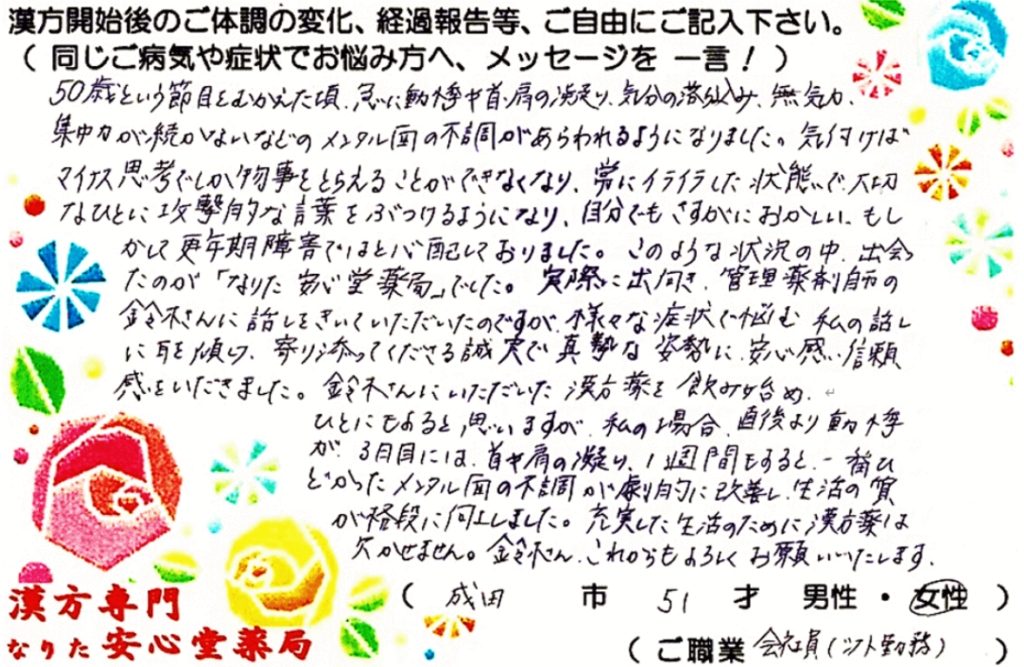 漢方開始後のご体調の変化、経過報告等、ご自由にご記入下さい。
（ 同じご病気や症状でお悩み方へ、メッセージを 一言！ ）
50歳という節目をむかえた頃、急に動悸や首・肩の凝り、気分の落ち込み、無気力、
集中力が続かないなどのメンタル面の不調があらわれるようになりました。気付けば
マイナス思考でしか物事をとらえることができなくなり、常にイライラした状態で、大切
なひとに攻撃的な言葉をぶつけるようになり、自分でもさすがにおかしい、もし
かして更年期障害ではと心配しておりました。このような状況の中、出会っ
たのが「なりた安心堂薬局」でした。実際に出向き、管理薬剤師の
鈴木さんに話しをきいていただいたのですが、様々な症状で悩む 私の話し
に耳を傾け、寄り添ってくださる誠実で真摯な姿勢に、安心感、信頼
感をいだきました。鈴木さんにいただいた漢方薬を飲み始め、
ひとにもよると思いますが、私の場合、直後より動悸
が、3日目には、首や肩の凝り、1週間もすると、一番ひ
どかったメンタル面の不調が劇的に改善し、生活の質
が格段に向上しました。充実した生活のために漢方薬は
欠かせません。鈴木さん、これからもよろしくお願いいたします。
（ 成田 市 51 才 男性 ・ 女性 ）
（ ご職業 会社員（シフト勤務） ）
漢方専門
なりた安心堂薬局